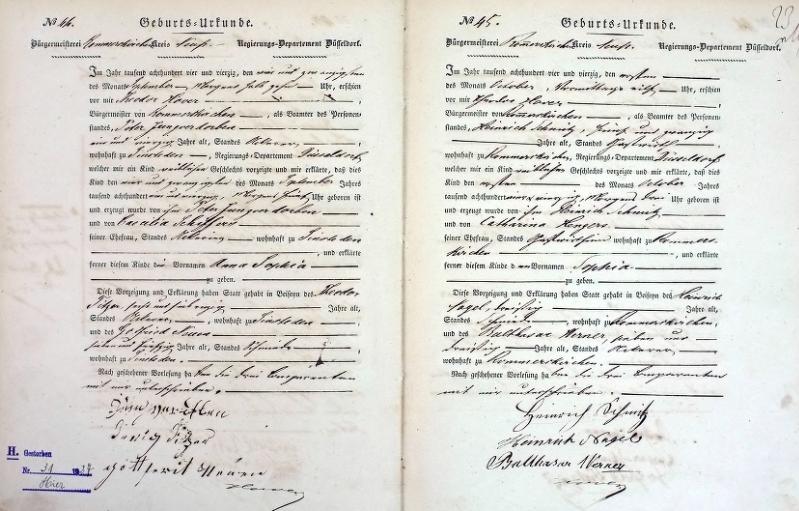 No 44.
Geburts-Urkunde.
Bürgermeisterei Rommerskirchen Kreis Neuß. Regierungs-Departement Düsseldorf.
Im Jahr tausend achthundert vier und vierzig, den
des Monats September Morgens halb zehn Uhr, erschien
vor mir Theodor Hover
Bürgermeister von Rommerskirchen, als Beamter des Personen-
standes, Peter Jungverdorben
ein und vierzig Jahre alt, Standes Ackerer,
wohnhaft zu Sinsteden, Regierungs-Departement Düsseldorf,
welcher mir ein Kind weiblichen Geschlechts vorzeigte und mir erklärte, daß dies
Kind den vier und zwanzigsten des Monats September Jahres
tausend achthundert vier und vierzig, Morgens fünf Uhr geboren ist
und erzeugt wurde von ihm Peter Jungverdorben
und von Caecilia Schiffers
seiner Ehefrau, Standes Ackerin wohnhaft zu Sinsteden
, und erklärte
ferner diesem Kinde die Vornamen Anna Sophia
zu geben.
Diese Vorzeigung und Erklärung haben Statt gehabt in Beiseyn des Theodor
Jahre alt,
Standes Ackerer, wohnhaft zu Sinsteden
und des Gotfried
sieben und fünfzig Jahre alt, Standes
wohnhaft zu Sinsteden.
Nach geschehener Vorlesung haben die drei Comparenten
mit mir unterschrieben.
H. Gestorben
Nr. 31
No 45.
Geburts-Urkunde.
23
Bürgermeisterei Rommerskirchen Kreis Neuß. Regierungs-Departement Düsseldorf.
Im Jahr tausend achthundert vier und vierzig, den ersten
des Monats October, Vormittags eilf Uhr, erschien
vor mir Theodor Hover
Bürgermeister von Rommerskirchen, als Beamter des Personen-
standes, Heinrich Schmitz, fünf und zwanzig
Jahre alt, Standes Gastwirth
wohnhaft zu Rommerskirchen, Regierungs-Departement Düsseldorf,
welcher mir ein Kind weiblichen Geschlechts vorzeigte und mir erklärte, daß dies
Kind den ersten des Monats October Jahres
tausend achthundert vier und vierzig, Morgens drei Uhr geboren ist
und erzeugt wurde von ihm Heinrich Schmitz
und von Catharina
seiner Ehefrau, Standes Gastwirthin wohnhaft zu Rommers-
kirchen, und erklärte
ferner diesem Kinde den Vornamen Sophia
zu geben.
Diese Vorzeigung und Erklärung haben Statt gehabt in Beiseyn des Heinrich
Nagel, dreißig Jahre alt,
Standes wohnhaft zu Rommerskirchen,
und des Balthasar Werner, sieben und
dreißig Jahre alt, Standes Ackerer,
wohnhaft zu Rommerskirchen
Nach geschehener Vorlesung haben die drei Comparenten
mit mir unterschrieben.
Heinrich Schmitz
Heinrich Nagel
Balthasar Werner